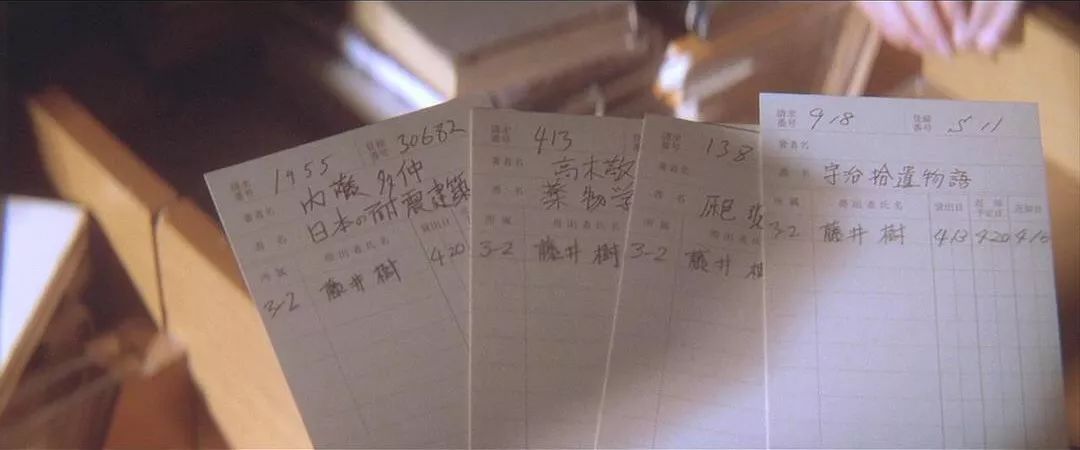 請求番号 1955 登録番号 30682
著者名 内藤 多仲
書名 日本の耐震建築
所属 貸出者氏名 貸出日
3-2 藤井 樹 4 20
請求番号 413
著者名 高木敬
書名 薬物学
所属 貸出者氏名
3-2 藤井 樹
請求番号 138
著者名
書名
所属 貸出者氏
3-2 藤井 樹
請求番号 918 登録番号 511
著者名
書名 宇治拾遺物語
所属 貸出者氏名 貸出日 返却予定日 返却日
3-2 藤井 樹 4 13 4 20 4 16